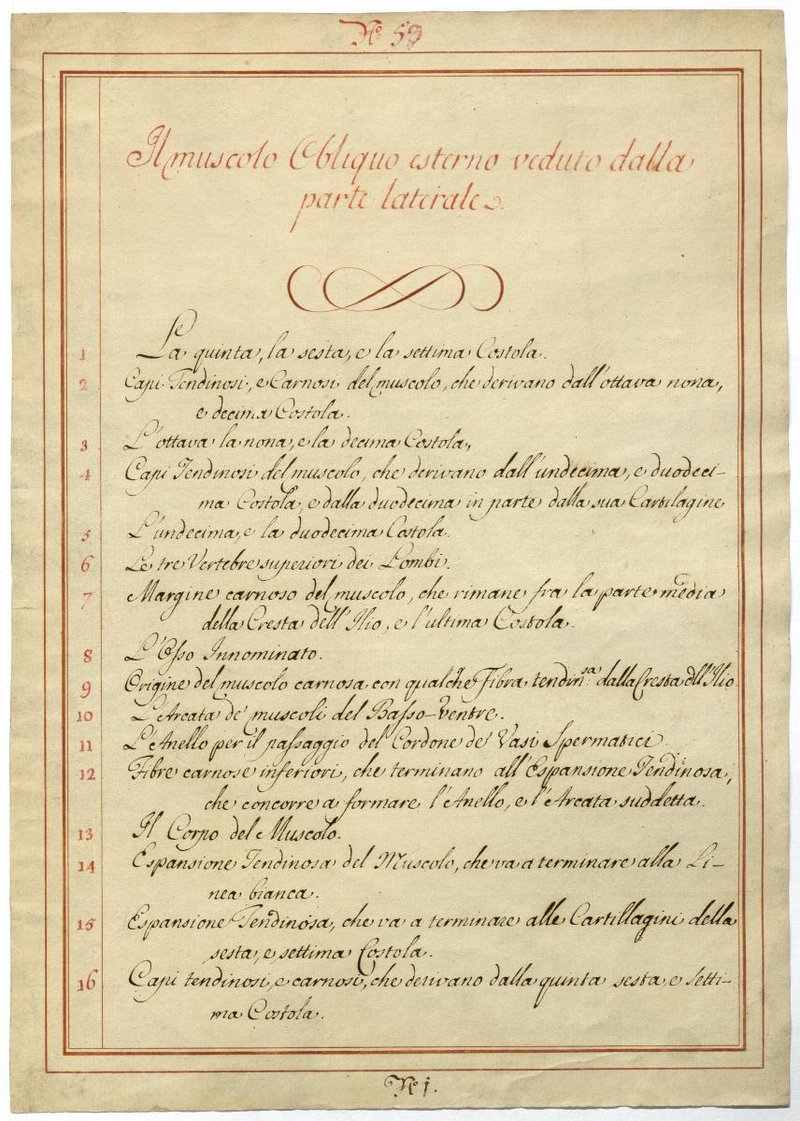 N.º 59
Il muscolo Obliquo esterno veduto dalla
parte laterale.
1 La quinta, la sesta, e la settima Costola.
2 Capi Tendinosi, e Carnosi del muscolo, che derivano dall'ottava nona,
e decima Costola.
3 L'ottava la nona, e la decima Costola,
4 Capi Tendinosi del muscolo, che derivano dall'undecima, e duodeci-
ma Costola, e dalla duodecima in parte dalla sua Cartilagine
5 L'undecima, e la duodecima Costola.
6 Le tre Vertebre superiori dei Lombi.
7 Margine carnoso del muscolo, che rimane fra la parte media
della Cresta dell'Ilio, e l'ultima Costola.
8 L'Osso Innominato.
9 Origine del muscolo carnosa con qualche Fibra tendin.sa dalla Cresta dll'Ilio
10 L'Arcata de' muscoli del Basso-Ventre.
11 L'Anello per il passaggio del Cordone de' Vasi Spermatici
12 Fibre carnose inferiori, che terminano all'Espansione Tendinosa,
che concorre a formare l'Anello, e l'Arcata suddetta.
13 Il Corpo del Muscolo.
14 Espansione Tendinosa del Muscolo, che va a terminare alla Li-
nea bianca.
15 Espansione Tendinosa, che va a terminare alle Cartillagini della
sesta, e settima Costola.
16 Capi tendinosi, e carnosi, che derivano dalla quinta sesta, e Setti-
ma Costola.
N.º 1.